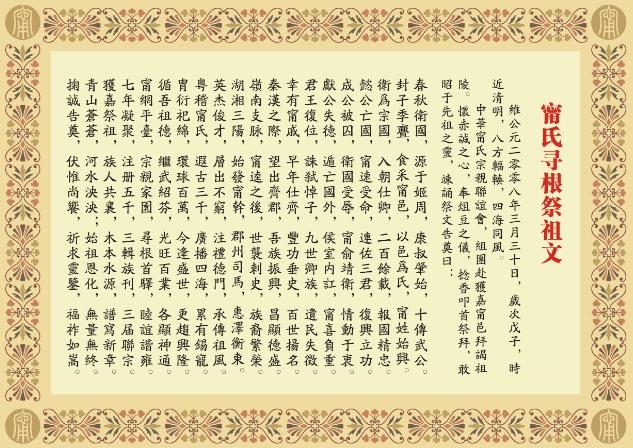 甯氏寻根祭祖文
維公元二零零八年三月三十日，歲次戊子，時
近清明，八方輻輳，四海同風。
中華甯氏宗親聯誼會，組團赴獲嘉甯邑拜謁祖
陵。懷赤誠之心，奉俎豆之儀，捻香叩首祭拜，敢
昭于先祖之靈，竦誦祭文告奠曰：
春秋衛國，源于姬周，康叔肇始，十傳武公。
封子季亹，食采甯邑，以邑爲氏，甯姓始興。
衛爲宗國，入朝仕卿，二百餘載，報國精忠。
懿公亡國，甯速受命，連佐三君，復興立功。
成公被囚，衛國受辱，甯俞靖衛，情動于衷。
獻公失德，遁亡國外，侯室内訌，甯喜負重。
君王復位，誅弒悼子，九世卿族，遺民失徵。
幸有甯戚，早年仕齊，豐功垂史，百世揚名。
秦漢之際，望出齊郡，吾族振興，昌顯德盛。
嶺南支脉，甯逵之後，世襲刺史，族裔繁榮。
湖湘三陽，始發甯幹，郡州司馬，惠澤衡東。
英杰俊才，層出不窮，注禮德門，承傳祖風。
粤稽甯氏，遐古三千，廣播四海，累有錫寵。
胄衍祀綿，環球百萬，今逢盛世，更趨興隆。
循吾祖德，繼武紹芬，光旺百業，各顯神通。
甯網平臺，宗親家園，尋根首驛，睦誼諧雍。
七年凝聚，注册五千，三輯族刊，三届聯宗。
獲嘉祭祖，族人共襄，木本水源，譜寫新章。
青山蒼蒼，河水泱泱；始祖恩化，無量無終。
掬誠告奠，伏惟尚饗，祈求靈鑒，福祚如嵩。